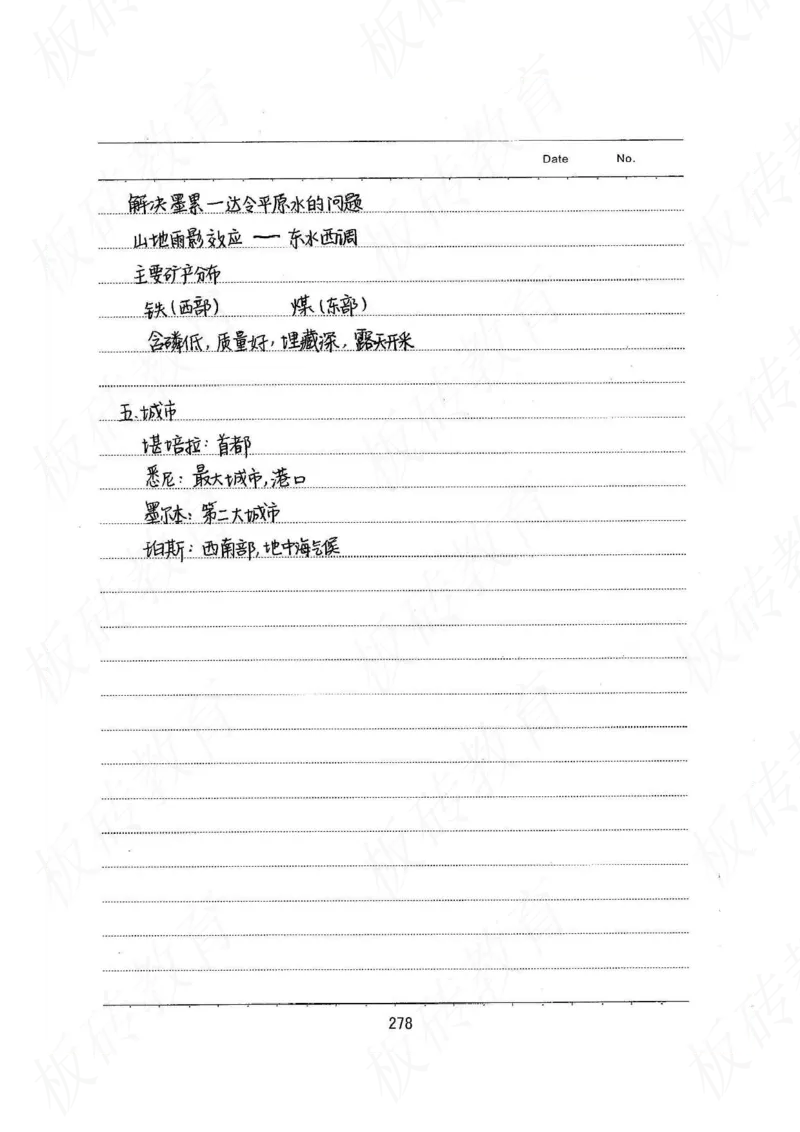 Date No.
解决墨累—达令平原水的问题
山地雨影效应 —— 东水西调
主要矿产分布
铁(西部) 煤(东部)
含磷低,质量好,埋藏深,露天开采
五.城市
堪培拉:首都
悉尼:最大城市,港口
墨尔本:第二大城市
珀斯:西南部,地中海气候
278
板砖教育